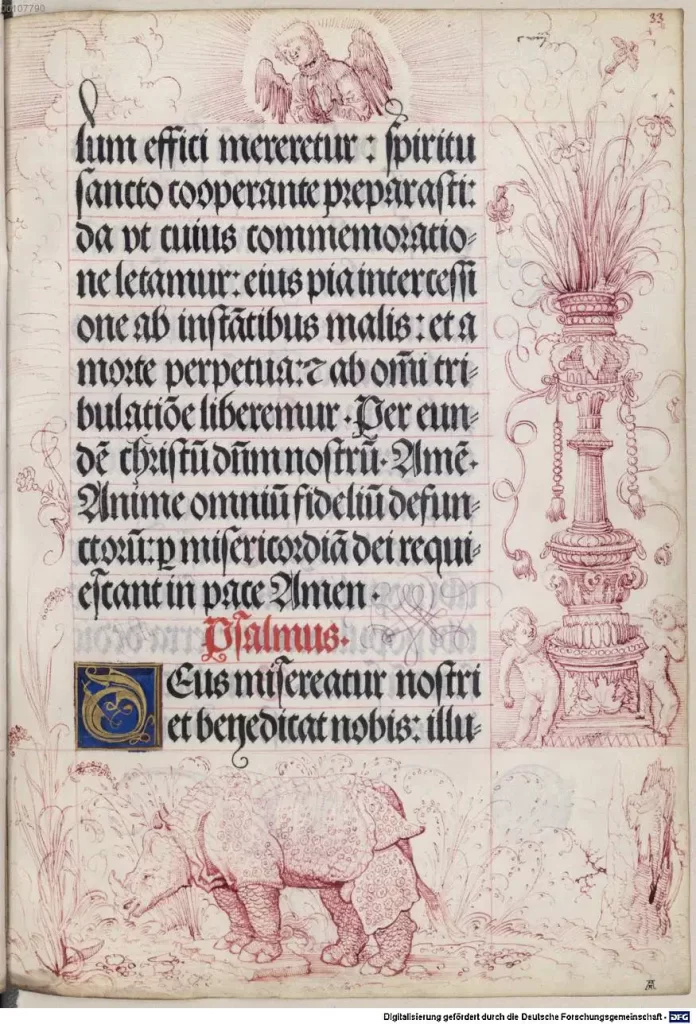 00107790
33
lum effici mereretur : spiritu
sancto cooperante preparasti:
da vt cuius commemoratio-
ne letamur: eius pia intercessi
one ab instātibus malis: et a
morte perpetua: ⁊ ab om̄i tri-
bulatiōe liberemur. Per eun-
dē christū dn̄m nostrū. Amē.
Anime omniū fideliū defun-
ctorū: ꝑ misericordiā dei requi-
escant in pace Amen.
Psalmus.
DEus misereatur nostri
et benedicat nobis: illu-
Digitalisierung gefördert durch die Deutsche Forschungsgemeinschaft - DFG